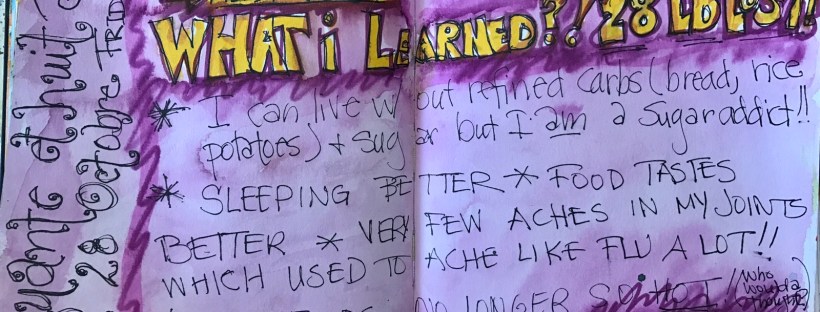 quante et huit
28 Octobre FRID
WHAT i LEARNED?! 28 LBLOS!!
* I can live w/out refined carbs (bread, rice
potatoes) + sugar but I am a Sugar addict!!
* SLEEPING BETTER * FOOD TASTES
BETTER * VERY FEW ACHES IN MY JOINTS
WHICH USED TO ACHE LIKE FLU A LOT!!
NO LONGER SO HOT! (who
woulda
thought?)